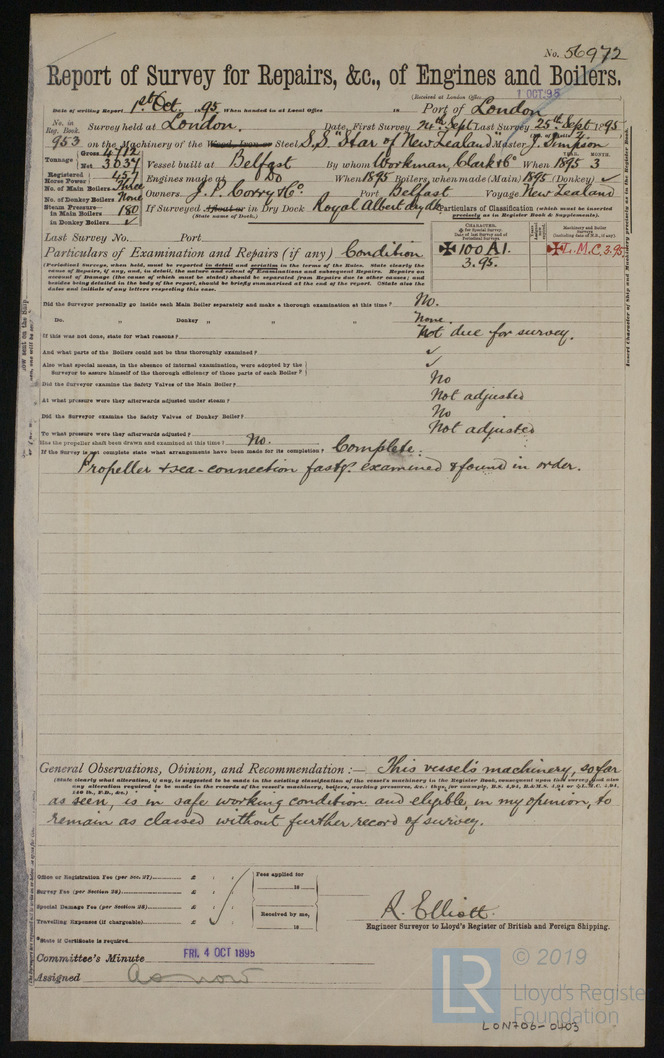 No. 56972
Report of Survey for Repairs, &c., of Engines and Boilers.
(Received at London Office, 1 OCT.95
Date of writing Report 1st Oct. 1895. When handed in at Local Office 18 Port of London
No. in Reg. Book. Survey held at London. Date, First Survey 24th Sept Last Survey 25th Sept 1895
953 on the Machinery of the Wood, Iron or Steel S.S. "Star of New Zealand" Master J. Simpson
Tonnage Gross 4712 Net 3037 Vessel built at Belfast By whom Workman, Clark & Co When 1895 3
Registered Horse Power 457 Engines made at Do When 1895 Boilers, when made (Main) 1895 (Donkey) ✓
No. of Main Boilers Three
No. of Donkey Boilers None Owners J. P. Corry & Co. Port Belfast Voyage New Zealand
Steam Pressure in Main Boilers 180 If Surveyed Afloat or in Dry Dock Royal Albert dry dk
in Donkey Boilers ✓ (State name of Dock.)
Particulars of Classification (which must be inserted precisely as in Register Book & Supplements).
Last Survey No. Port
✠ 100 A1. ✠ L.M.C. 3.95
3.95.
Particulars of Examination and Repairs (if any) Condition
(Periodical Surveys, when held, must be reported in detail and seriatim in the terms of the Rules. State clearly the
cause of Repairs, if any, and, in detail, the nature and extent of Examinations and subsequent Repairs. Repairs on
account of Damage (the cause of which must be stated) should be separated from Repairs due to other causes; and
besides being detailed in the body of the report, should be briefly summarised at the end of the report. State also the
dates and initials of any letters respecting this case.)
Did the Surveyor personally go inside each Main Boiler separately and make a thorough examination at this time? No.
Do. „ Donkey „ „ „ None.
If this was not done, state for what reasons? Not due for survey.
And what parts of the Boilers could not be thus thoroughly examined? ✓
Also what special means, in the absence of internal examination, were adopted by the
Surveyor to assure himself of the thorough efficiency of those parts of each Boiler? ✓
Did the Surveyor examine the Safety Valves of the Main Boiler? No
At what pressure were they afterwards adjusted under steam? Not adjusted
Did the Surveyor examine the Safety Valves of Donkey Boiler? No
To what pressure were they afterwards adjusted? Not adjusted
Has the propeller shaft been drawn and examined at this time? No.
If the Survey is not complete state what arrangements have been made for its completion? Complete.
Propeller & sea-connection fastgs. examined & found in order.
General Observations, Opinion, and Recommendation :— This vessel's machinery, so far
(State clearly what alteration, if any, is suggested to be made in the existing classification of the vessel's machinery in the Register Book, consequent upon this survey, and also
any alteration required to be made in the records of the vessel's machinery, boilers, working pressures, &c.: thus, for example, B.S. 4,94, B.&M.S. 4,94 or ✠L.M.C. 4,94,
140 lb., F.D., &c.)
as seen, is in safe working condition and eligible, in my opinion, to
remain as classed without further record of survey.
Office or Registration Fee (per Sec. 27) £ : : Fees applied for
Survey Fee (per Section 28) £ : : 18
Special Damage Fee (per Section 28) £ : : Received by me,
Travelling Expenses (if chargeable) £ : : 18
R. Elliott.
Engineer Surveyor to Lloyd's Register of British and Foreign Shipping.
*State if Certificate is required
Committee's Minute FRI. 4 OCT 1895
Assigned As now
LR
© 2019
Lloyd's Register
Foundation
LON706-0403